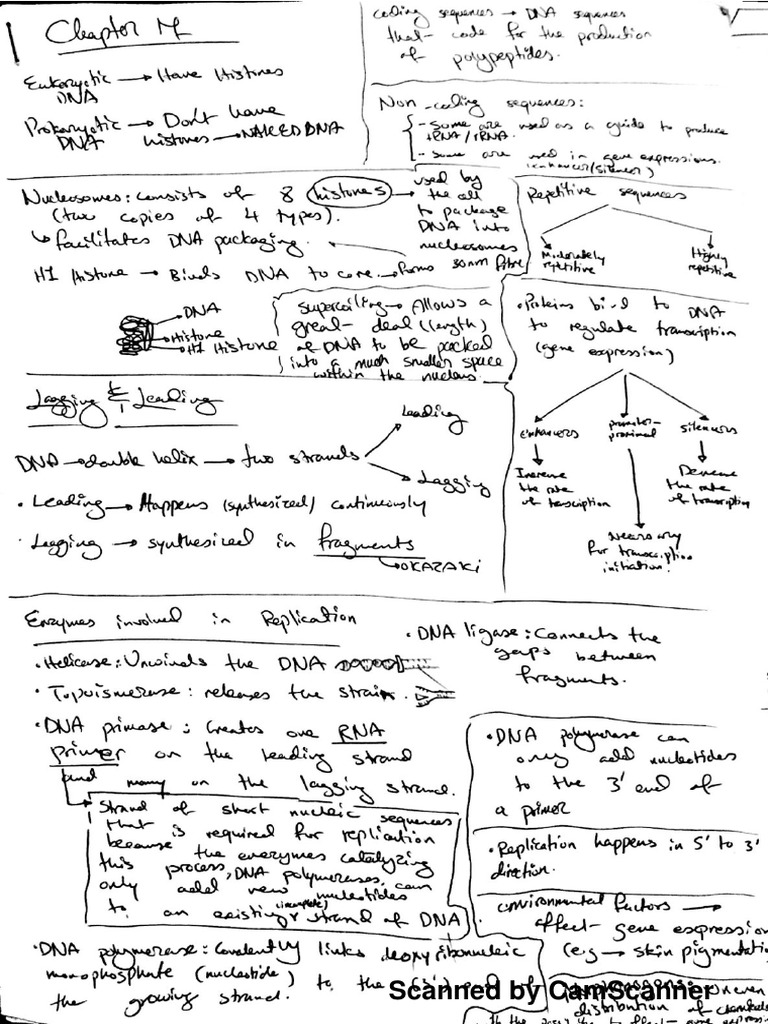 Chapter 7
Eukaryotic → Have Histones
DNA
Prokaryotic → Don't have
DNA histones → NAKED DNA
coding sequences → DNA sequences
that code for the production
of polypeptides.
Non-coding sequences:
- some are used as a guide to produce
tRNA/rRNA.
- some are used in gene expressions.
(enhancer/silencer)
Nucleosomes: consists of 8 histones →
(two copies of 4 types).
↳ facilitates DNA packaging.
used by
the cell
to package
DNA into
nucleosomes
H1 Histone → Binds DNA to core → forms 30nm fibre
DNA
Histone
H1 Histone
supercoiling → Allows a
great deal (length)
of DNA to be packed
into a much smaller space
within the nucleus.
Repetitive sequences
Moderately
repetitive
Highly
repetitive
• Proteins bind to DNA
to regulate transcription
(gene expression)
enhancers
promoter-
proximal
silencers
Increase
the rate
of transcription
Decrease
the rate
of transcription
Necessary
for transcription
initiation.
Lagging & Leading
DNA → double helix → two strands
Leading
Lagging
• Leading → Happens (synthesized) continuously
• Lagging → synthesized in fragments
↳ OKAZAKI
Enzymes involved in Replication
• Helicase: Unwinds the DNA
• Topoismerase: releases the strain
• DNA primase: Creates one RNA
primer on the leading strand
and many on the lagging strand.
Strand of short nucleic sequences
that is required for replication
because the enzymes catalyzing
this process, DNA polymerases, can
only add new nucleotides
(incomplete)
to an existing strand of DNA
• DNA polymerase: Covalently links deoxyribonucleic
monophosphate (nucleotide) to the (3') end of
the growing strand.
• DNA ligase: Connects the
gaps between
fragments.
• DNA polymerase can
only add nucleotides
to the 3' end of
a primer
• Replication happens in 5' to 3'
direction.
environmental factors →
affect gene expression
(e.g → skin pigmentatio
uneven
distribution of
Scanned by CamScanner